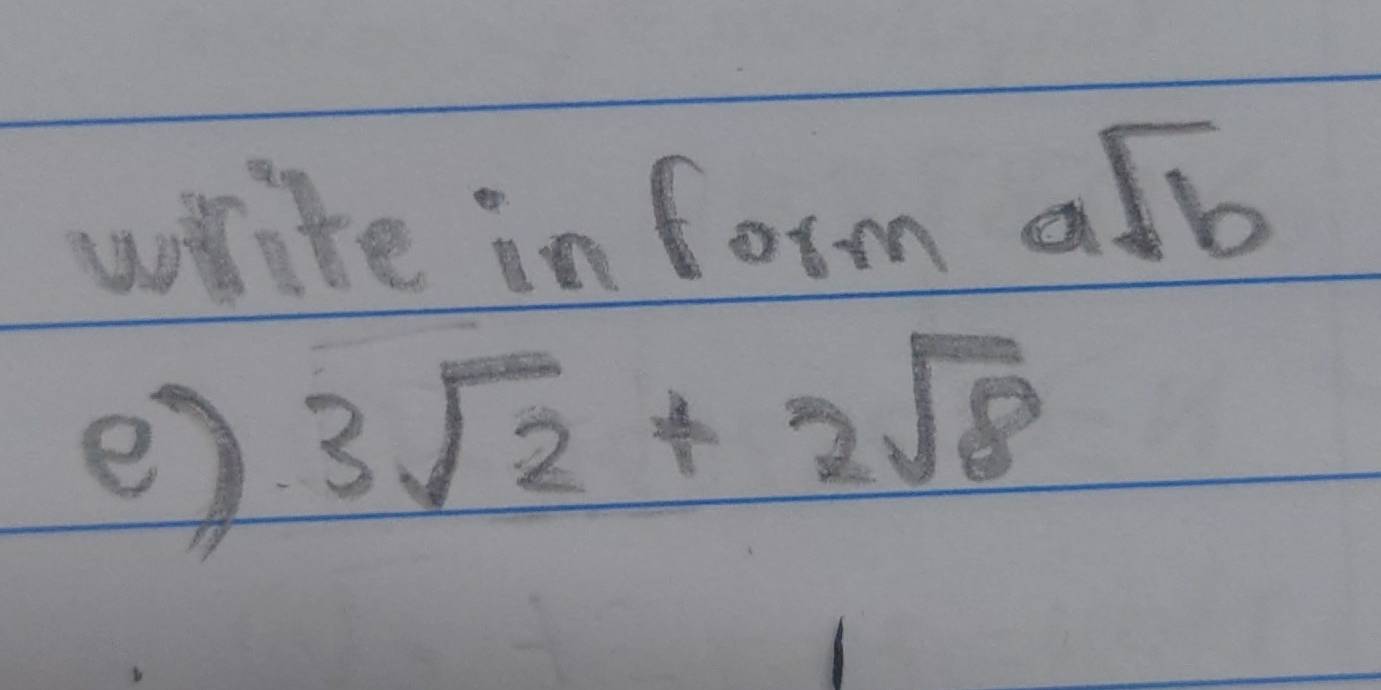 write in form a√b
e) 3√2 + 2√8